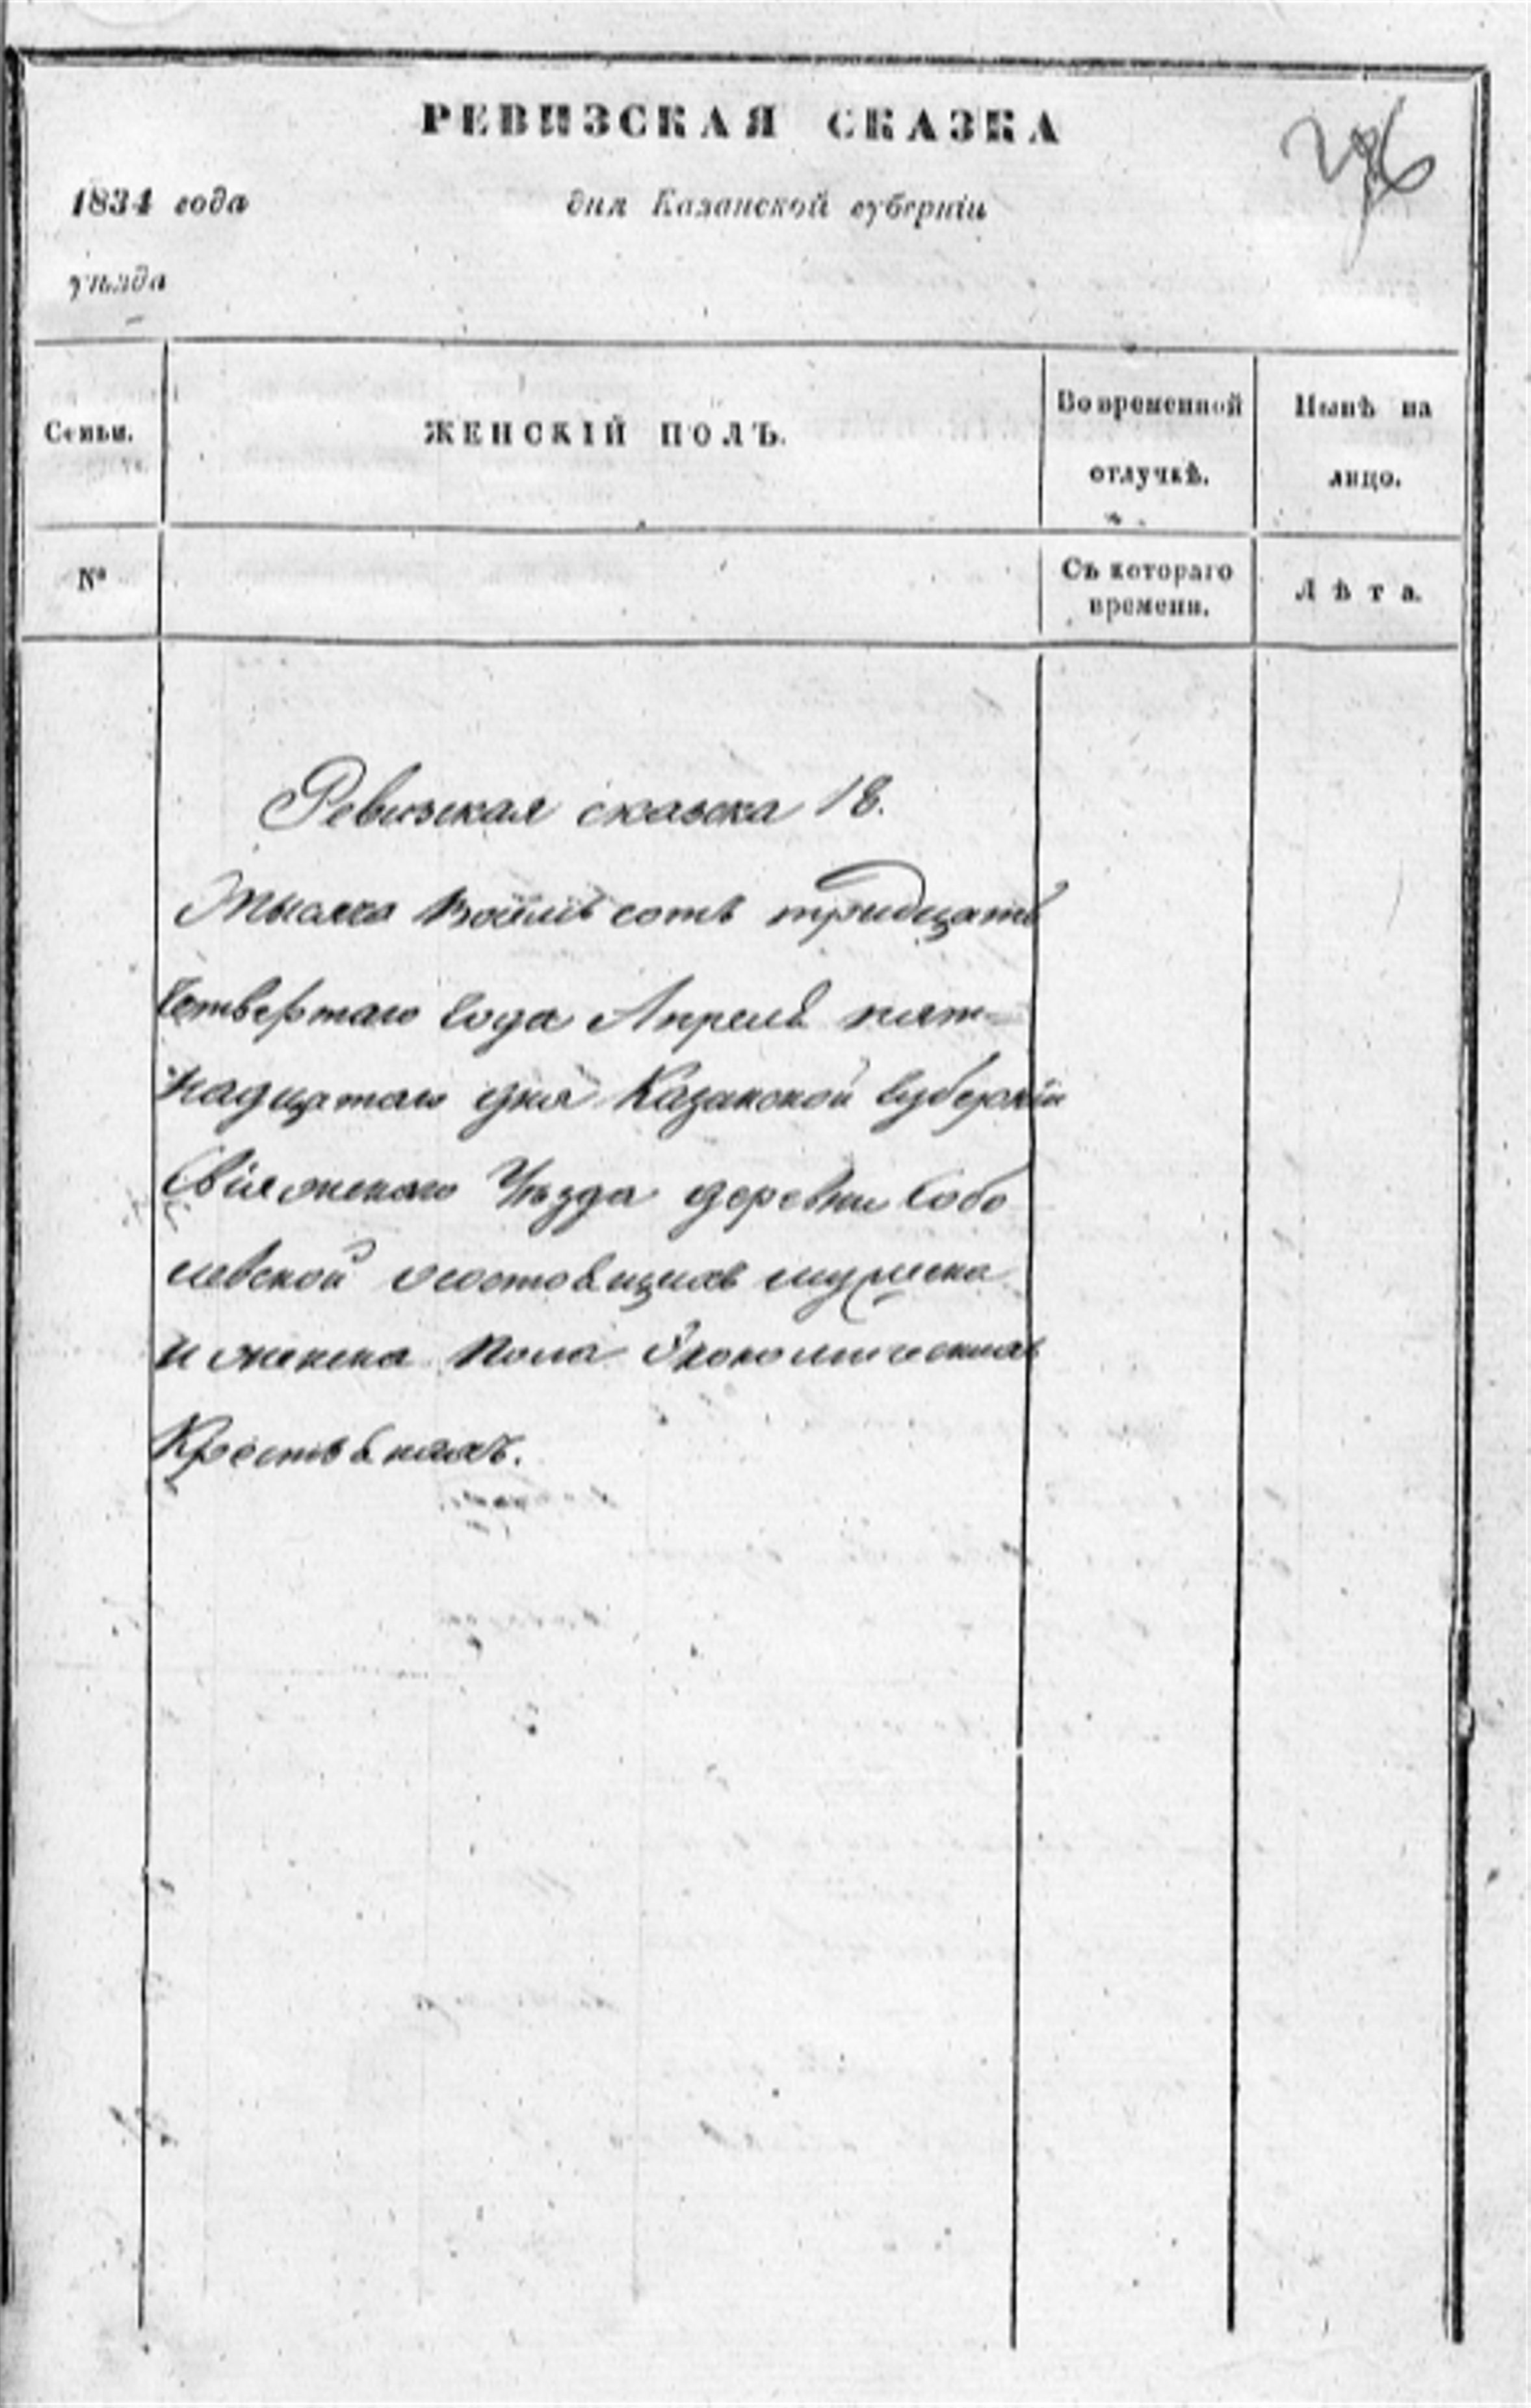 РЕВИЗСКАЯ СКАЗКА
1834 года дня Казанской губерніи
уѣзда
Семьи. ЖЕНСКІЙ ПОЛЪ. Во временной отлучкѣ. Нынѣ на лицо.
№ Съ котораго времени. Лѣта.
Ревизская сказка 18.
Тысяча восемь сотъ тридцать
четвертаго года Апреля пят=
надцатаго дня Казанской губерніи
Свіяжскаго Уѣзда деревни Собо
левской о состоящихъ мужеска
и женска пола Экономическихъ
Крестьянахъ.